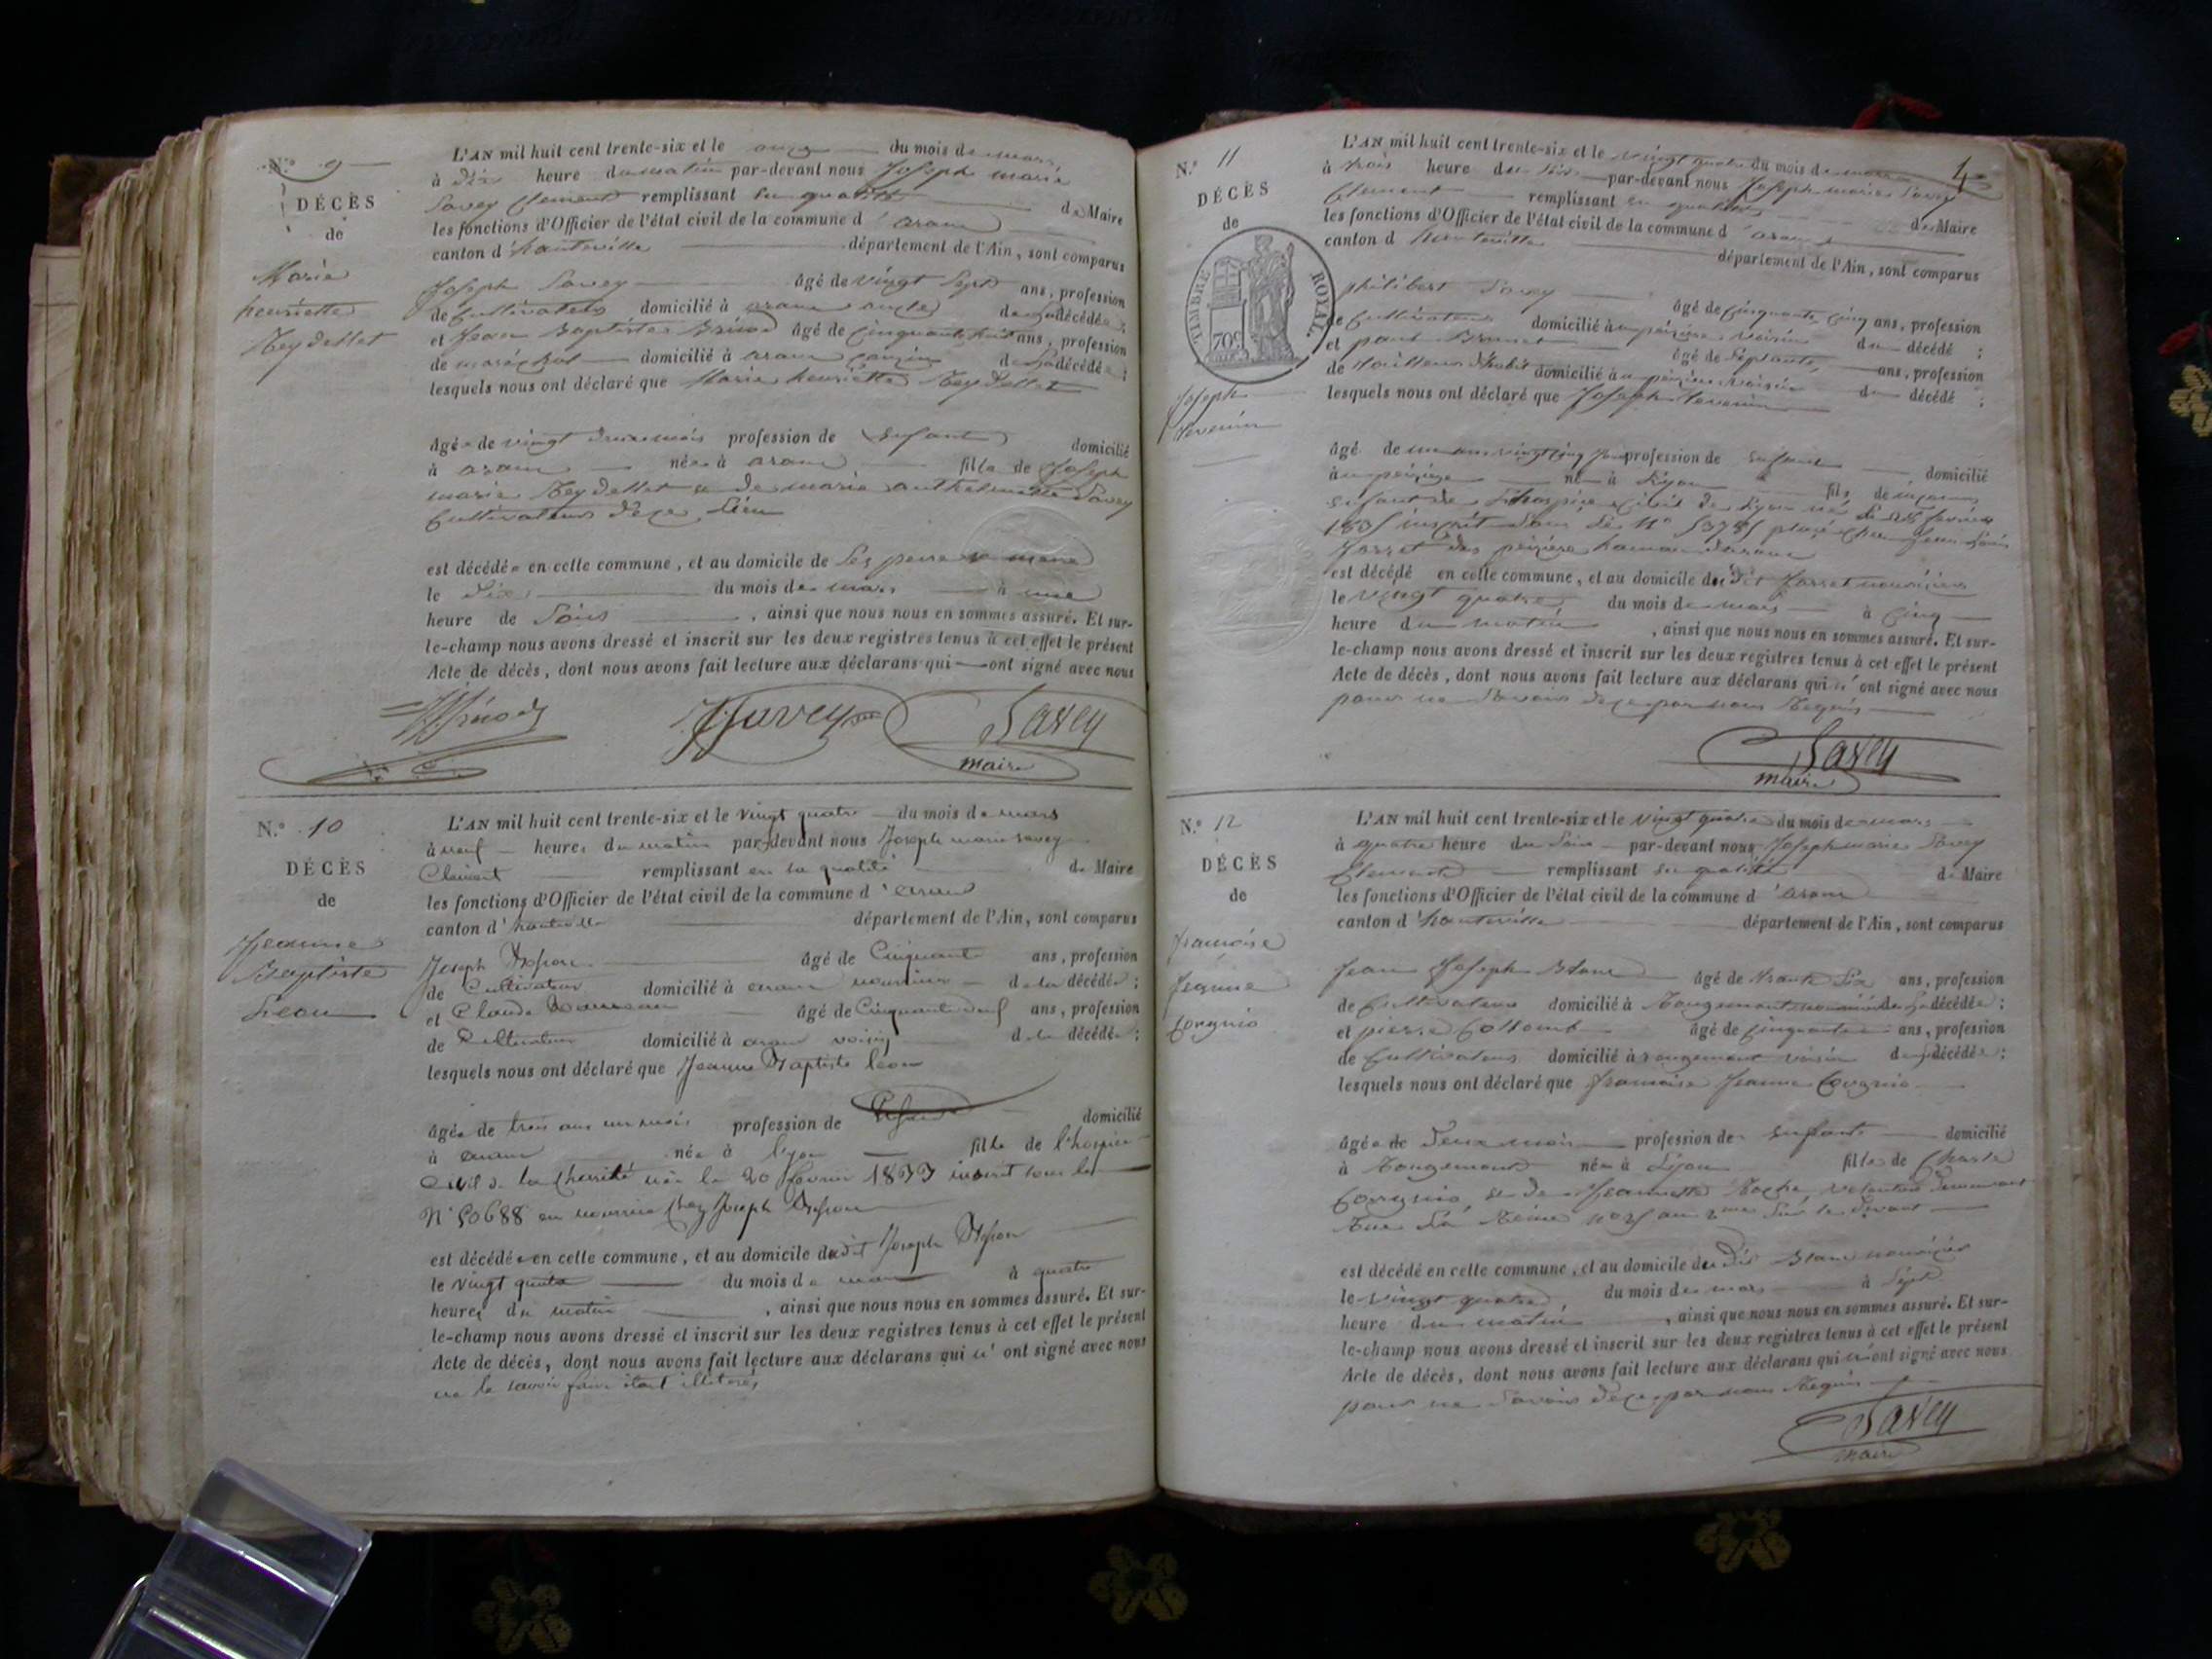 N.° 9
DÉCÈS
de
Marie
henriette
Reydellet
L'AN mil huit cent trente-six et le onze du mois de mars
à dix heure du matin par-devant nous Joseph marie
Savey Clement remplissant en qualité de Maire
les fonctions d'Officier de l'état civil de la commune d'aranc
canton d'hauteville département de l'Ain, sont comparus
Joseph Savey âgé de vingt sept ans, profession
de Cultivateur domicilié à aranc oncle de la décédée;
et Jean Baptiste Brinod âgé de Cinquante huit ans, profession
de maréchal domicilié à aranc cousin de la décédée;
lesquels nous ont déclaré que Marie henriette Reydellet
âgée de vingt deux mois profession de Enfant domicilié
à aranc née à aranc fille de Joseph
marie Reydellet et de marie anthelmette Savey
Cultivateurs de ce lieu
est décédée en cette commune, et au domicile de Ses pere et mere
le dix du mois de mars à une
heure de Soir, ainsi que nous nous en sommes assuré. Et sur-
le-champ nous avons dressé et inscrit sur les deux registres tenus à cet effet le présent
Acte de décès, dont nous avons fait lecture aux déclarans qui ont signé avec nous
Brinod JSavey Savey
maire
N.° 10
DÉCÈS
de
Jeanne
Baptiste
Leon
L'AN mil huit cent trente-six et le vingt quatre du mois de mars
à neuf heures du matin par-devant nous Joseph marie Savey
Clement remplissant en sa qualité de Maire
les fonctions d'Officier de l'état civil de la commune d'aranc
canton d'hauteville département de l'Ain, sont comparus
Joseph âgé de Cinquante ans, profession
de Cultivateur domicilié à aranc nourricier de la décédée;
et Claude âgé de Cinquante neuf ans, profession
de Cultivateur domicilié à aranc voisin de la décédée;
lesquels nous ont déclaré que Jeanne Baptiste leon
âgée de trois ans un mois profession de Enfant domicilié
à aranc née à lyon fille de l'hospice
Civil de la Charité née le 20 fevrier 1833 inscrit sous le
N° 50688 en nourrice chez Joseph
est décédée en cette commune, et au domicile du dit Joseph
le vingt quatre du mois de mars à quatre
heures du matin, ainsi que nous nous en sommes assuré. Et sur-
le-champ nous avons dressé et inscrit sur les deux registres tenus à cet effet le présent
Acte de décès, dont nous avons fait lecture aux déclarans qui n'ont signé avec nous
ne le savoir faire étant illiterés
4
N.° 11
DÉCÈS
de
TIMBRE ROYAL
70c
Joseph
Severin
L'AN mil huit cent trente-six et le vingt quatre du mois de mars
à trois heure du Soir par-devant nous Joseph marie Savey
Clement remplissant en qualité de Maire
les fonctions d'Officier de l'état civil de la commune d'aranc
canton d'hauteville département de l'Ain, sont comparus
philibert Savey âgé de Cinquante cinq ans, profession
de Cultivateur domicilié à voisin du décédé;
et âgé de Septante ans, profession
de tailleur d'habit domicilié à voisin du décédé;
lesquels nous ont déclaré que Joseph Severin
âgé de un ans vingt cinq jours profession de Enfant domicilié
à né à Lyon fils de inconnu
Enfant de l'hospice Civil de Lyon né le fevrier
1835 inscrit Sous Le N° placé chez
hameau d'aranc
est décédé en cette commune, et au domicile du dit nourricier
le vingt quatre du mois de mars à cinq
heure du matin, ainsi que nous nous en sommes assuré. Et sur-
le-champ nous avons dressé et inscrit sur les deux registres tenus à cet effet le présent
Acte de décès, dont nous avons fait lecture aux déclarans qui n'ont signé avec nous
pour ne Savoir de ce par nous Requis
Savey
maire
N.° 12
DÉCÈS
de
francoise
Jeanne
Corgnio
L'AN mil huit cent trente-six et le vingt quatre du mois de mars
à quatre heure du Soir par-devant nous Joseph marie Savey
Clement remplissant en qualité de Maire
les fonctions d'Officier de l'état civil de la commune d'aranc
canton d'hauteville département de l'Ain, sont comparus
Jean Joseph Blanc âgé de trante Six ans, profession
de Cultivateur domicilié à Rougemont nourricier de la décédée;
et pierre Collomb âgé de cinquante ans, profession
de Cultivateur domicilié à rougemont voisin de la décédée;
lesquels nous ont déclaré que francoise Jeanne Corgnio
âgée de deux mois profession de Enfant domicilié
à Rougemont née à Lyon fille de Charle
Corgnio et de Jeannette Roche demeurant
Rue La Reine n° 25 au 2me Sur le devant
est décédé en cette commune, et au domicile du dit Blanc nourricier
le vingt quatre du mois de mars à Sept
heure du matin, ainsi que nous nous en sommes assuré. Et sur-
le-champ nous avons dressé et inscrit sur les deux registres tenus à cet effet le présent
Acte de décès, dont nous avons fait lecture aux déclarans qui n'ont signé avec nous
pour ne Savoir de ce par nous Requis
Savey
maire